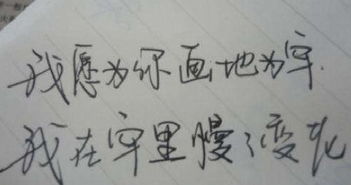 我愿为你画地为牢.
我在牢里慢慢变老